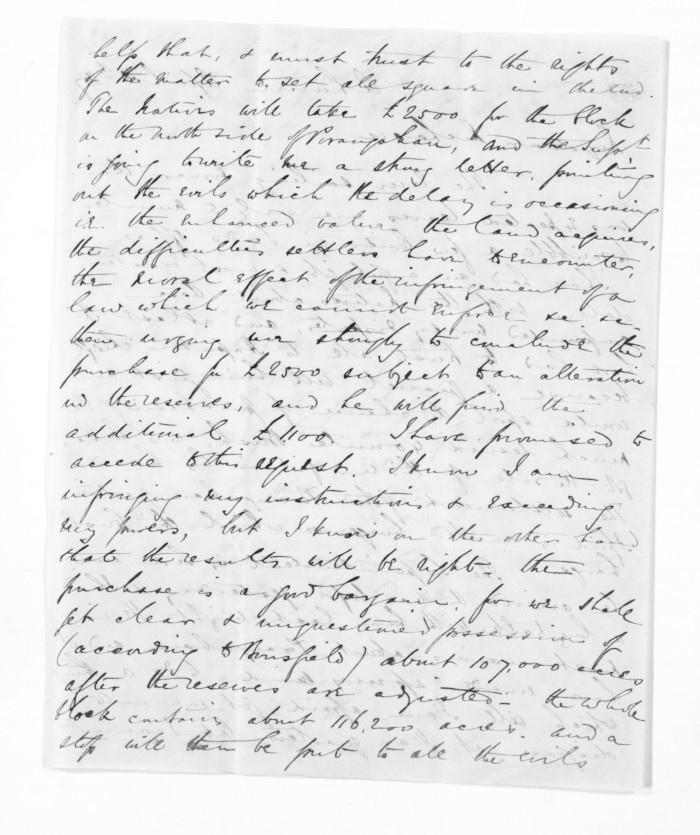 help that, & must trust to the rights
of the matter to set all square in the end.
The Natives will take £2500 for the block
on the north side of Porangahau, and the Supt
is going to write me a strong letter, pointing
out the evils which the delay is occasioning
i.e. the enhanced value the land acquires,
the difficulties settlers have to encounter,
the moral effect of the infringement of a
law which we cannot enforce &c. &c.
then urging me strongly to conclude the
purchase for £2500 subject to an alteration
in the reserves, and he will find the
additional £1100. I have promised to
accede to this request. I know I am
infringing my instructions & exceeding
my powers, but I know on the other hand
that the results will be right - the
purchase is a good bargain, for we shall
get clear & unquestioned possession of
(according to Bousfield) about 107,000 acres
after the reserves are adjusted - the whole
block contains about 116,200 acres. and a
stop will then be put to all the evils